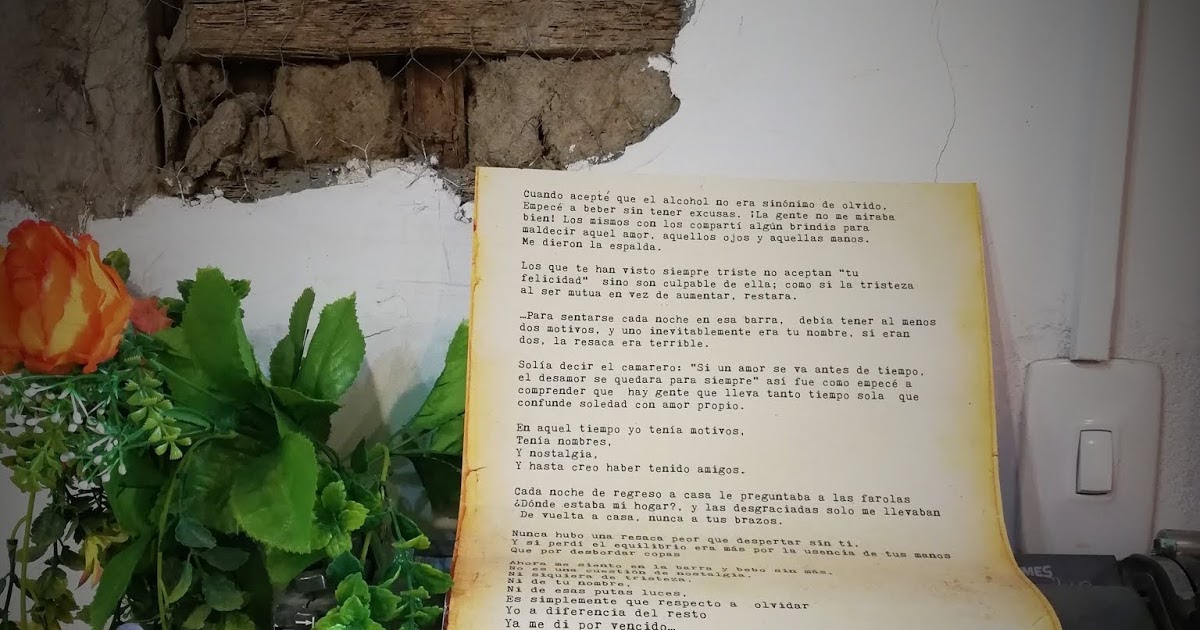 Cuando acepté que el alcohol no era sinónimo de olvido.
Empecé a beber sin tener excusas. ¡La gente no me miraba
bien! Los mismos con los compartí algún brindis para
maldecir aquel amor, aquellos ojos y aquellas manos.
Me dieron la espalda.
Los que te han visto siempre triste no aceptan "tu
felicidad" sino son culpable de ella; como si la tristeza
al ser mutua en vez de aumentar, restara.
…Para sentarse cada noche en esa barra, debía tener al menos
dos motivos, y uno inevitablemente era tu nombre, si eran
dos, la resaca era terrible.
Solía decir el camarero: "Si un amor se va antes de tiempo,
el desamor se quedara para siempre" así fue como empecé a
comprender que hay gente que lleva tanto tiempo sola que
confunde soledad con amor propio.
En aquel tiempo yo tenía motivos,
Tenía nombres,
Y nostalgia,
Y hasta creo haber tenido amigos.
Cada noche de regreso a casa le preguntaba a las farolas
¿Dónde estaba mi hogar?, y las desgraciadas solo me llevaban
De vuelta a casa, nunca a tus brazos.
Nunca hubo una resaca peor que despertar sin ti.
Y si perdí el equilibrio era más por la usencia de tus manos
Que por desbordar copas
Ahora me siento en la barra y bebo sin más.
No es una cuestión de nostalgia.
Ni siquiera de tristeza.
Ni de tu nombre,
Ni de esas putas luces,
Es simplemente que respecto a olvidar
Yo a diferencia del resto
Ya me di por vencido…